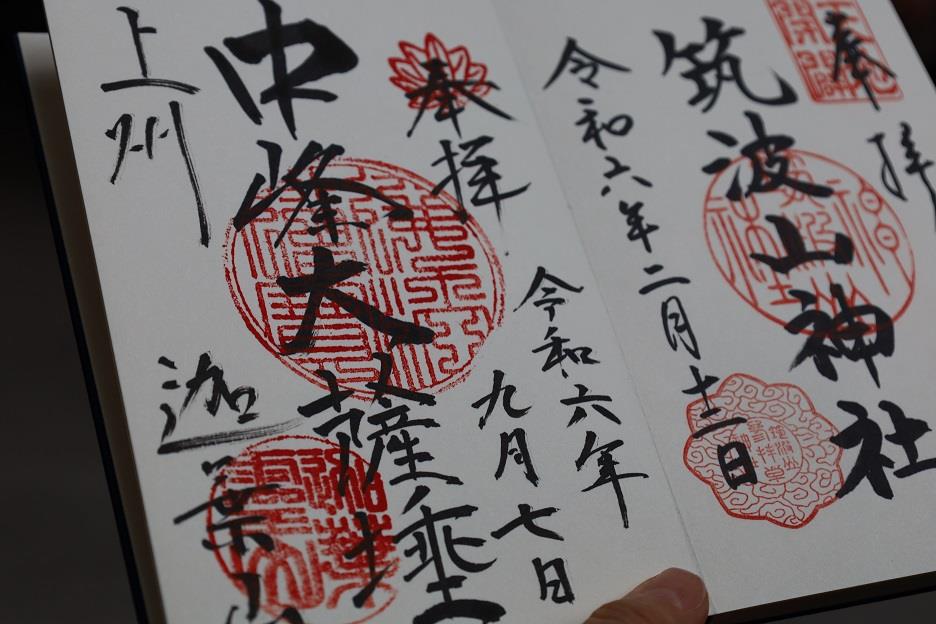 奉拝
筑波山神社
令和六年二月十二日
奉拝
令和六年
九月七日
中峰大薩埵
上州
迦葉山